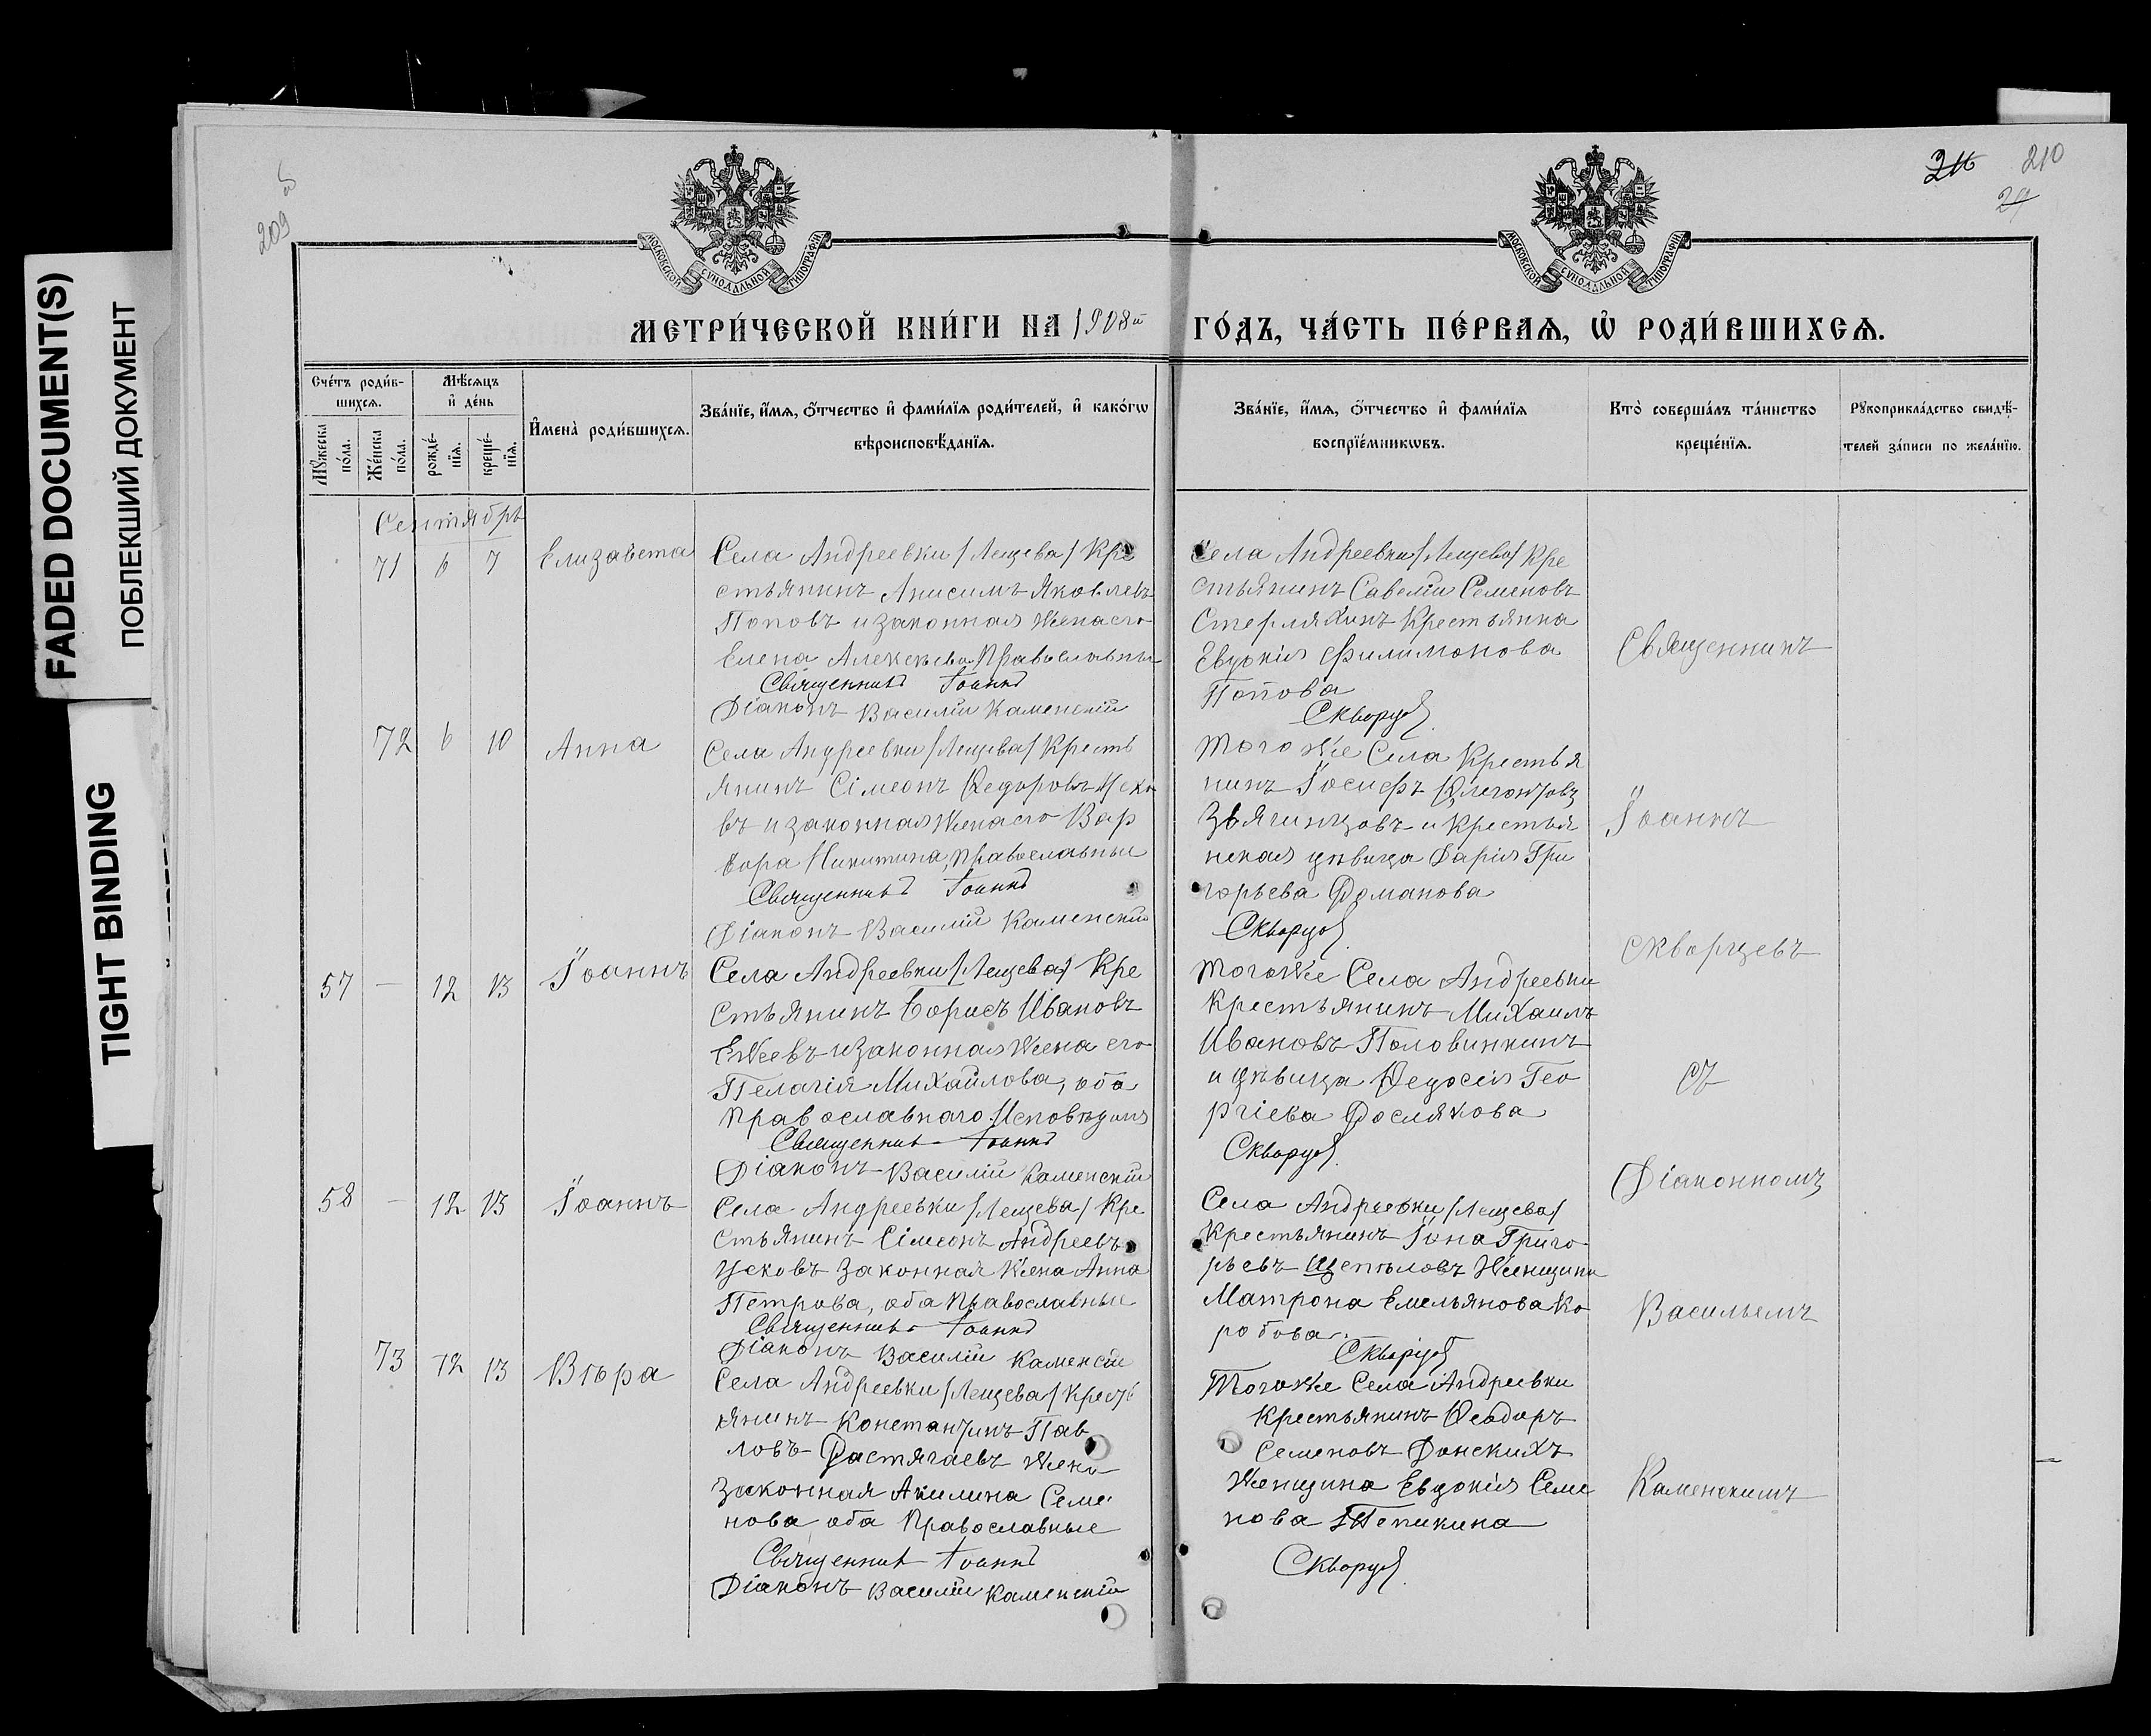 FADED DOCUMENT(S)
ПОБЛЕКШИЙ ДОКУМЕНТ
TIGHT BINDING
209
210
МОСКОВСКОЙ СѴНОДАЛЬНОЙ ТИПОГРАФІИ
МОСКОВСКОЙ СѴНОДАЛЬНОЙ ТИПОГРАФІИ
МЕТРИ́ЧЕСКОЙ КНИ́ГИ НА 1908й ГО́ДЪ, ЧА́СТЬ ПЕ́РВАѦ, Ѡ҆ РОДИ́ВШИХСѦ.
Сче́тъ роди́в-
шихсѧ.
Мꙋ́жеска по́ла.
Же́нска по́ла.
Мѣ́сѧцъ
и҆ де́нь
рожде́-
нїѧ.
креще́-
нїѧ.
И҆мена̀ роди́вшихсѧ.
Зва́нїе, и҆́мѧ, ѻ҆́тчество и҆ фами́лїѧ роди́телей, и҆ како́гѡ
вѣроисповѣ́данїѧ.
Зва́нїе, и҆́мѧ, ѻ҆́тчество и҆ фами́лїѧ
воспрїе́мникѡвъ.
Кто̀ соверша́лъ та́инство
креще́нїѧ.
Рꙋкоприкла́дство свидѣ́-
телей за́писи по жела́нїю.
Сентябрь
71 6 7 Елизавета
Села Андреевки /Лещева/ Кре
стьянинъ Анисимъ Яковлевъ
Поповъ и законная жена его
Елена Алексѣева Православны
Священникъ Іоаннъ
Діаконъ Василій Каменскій
Села Андреевки /Лещева/ Кре
стьянинъ Савелій Семеновъ
Стерляхинъ Крестьянка
Евдокія Филимонова
Попова
Скворцовъ
72 6 10 Анна
Села Андреевки /Лещева/ Кресть
янинъ Сімеонъ Ѳедоровъ
въ и законная жена его Вар
вара Никитина, Православные
Священникъ Іоаннъ
Діаконъ Василій Каменскій
Того же Села Крестья
нинъ Іосифъ
Звягинцовъ и Крестья
нская дѣвица Дарія Гри
горьева Романова
Скворцовъ
57 — 12 13 Іоаннъ
Села Андреевки /Лещева/ Кре
стьянинъ Борисъ Ивановъ
Ежевъ и законная жена его
Пелагія Михайлова, оба
православнаго Исповѣдыя
Священникъ Іоаннъ
Діаконъ Василій Каменскій
Тогоже Села Андреевки
Крестьянинъ Михаилъ
Ивановъ Половинкинъ
и дѣвица Ѳедосія Гео
ргіева Рослякова
Скворцовъ
58 — 12 13 Іоаннъ
Села Андреевки /Лещева/ Кре
стьянинъ Сімеонъ Андреевъ
Усковъ законная жена Анна
Петрова, оба Православные
Священникъ Іоаннъ
Діаконъ Василій Каменскій
Села Андреевки /Лещева/
Крестьянинъ Іона Григо
рьевъ Щепиловъ Женщина
Матрона Емельянова Ко
робова.
Скворцовъ
73 12 13 Вѣра
Села Андреевки /Лещева/ Кресть
янинъ Константинъ Пав
ловъ Растягаевъ жена
законная Акилина Семе
нова оба Православные
Священникъ Іоаннъ
Діаконъ Василій Каменскій
Тогоже Села Андреевки
Крестьянинъ Ѳеодоръ
Семеновъ Донскихъ
Женщина Евдокія Семе
нова Тепикина
Скворцовъ
Священникъ
Іоаннъ
Скворцевъ
съ
Діакономъ
Васильемъ
Каменскимъ